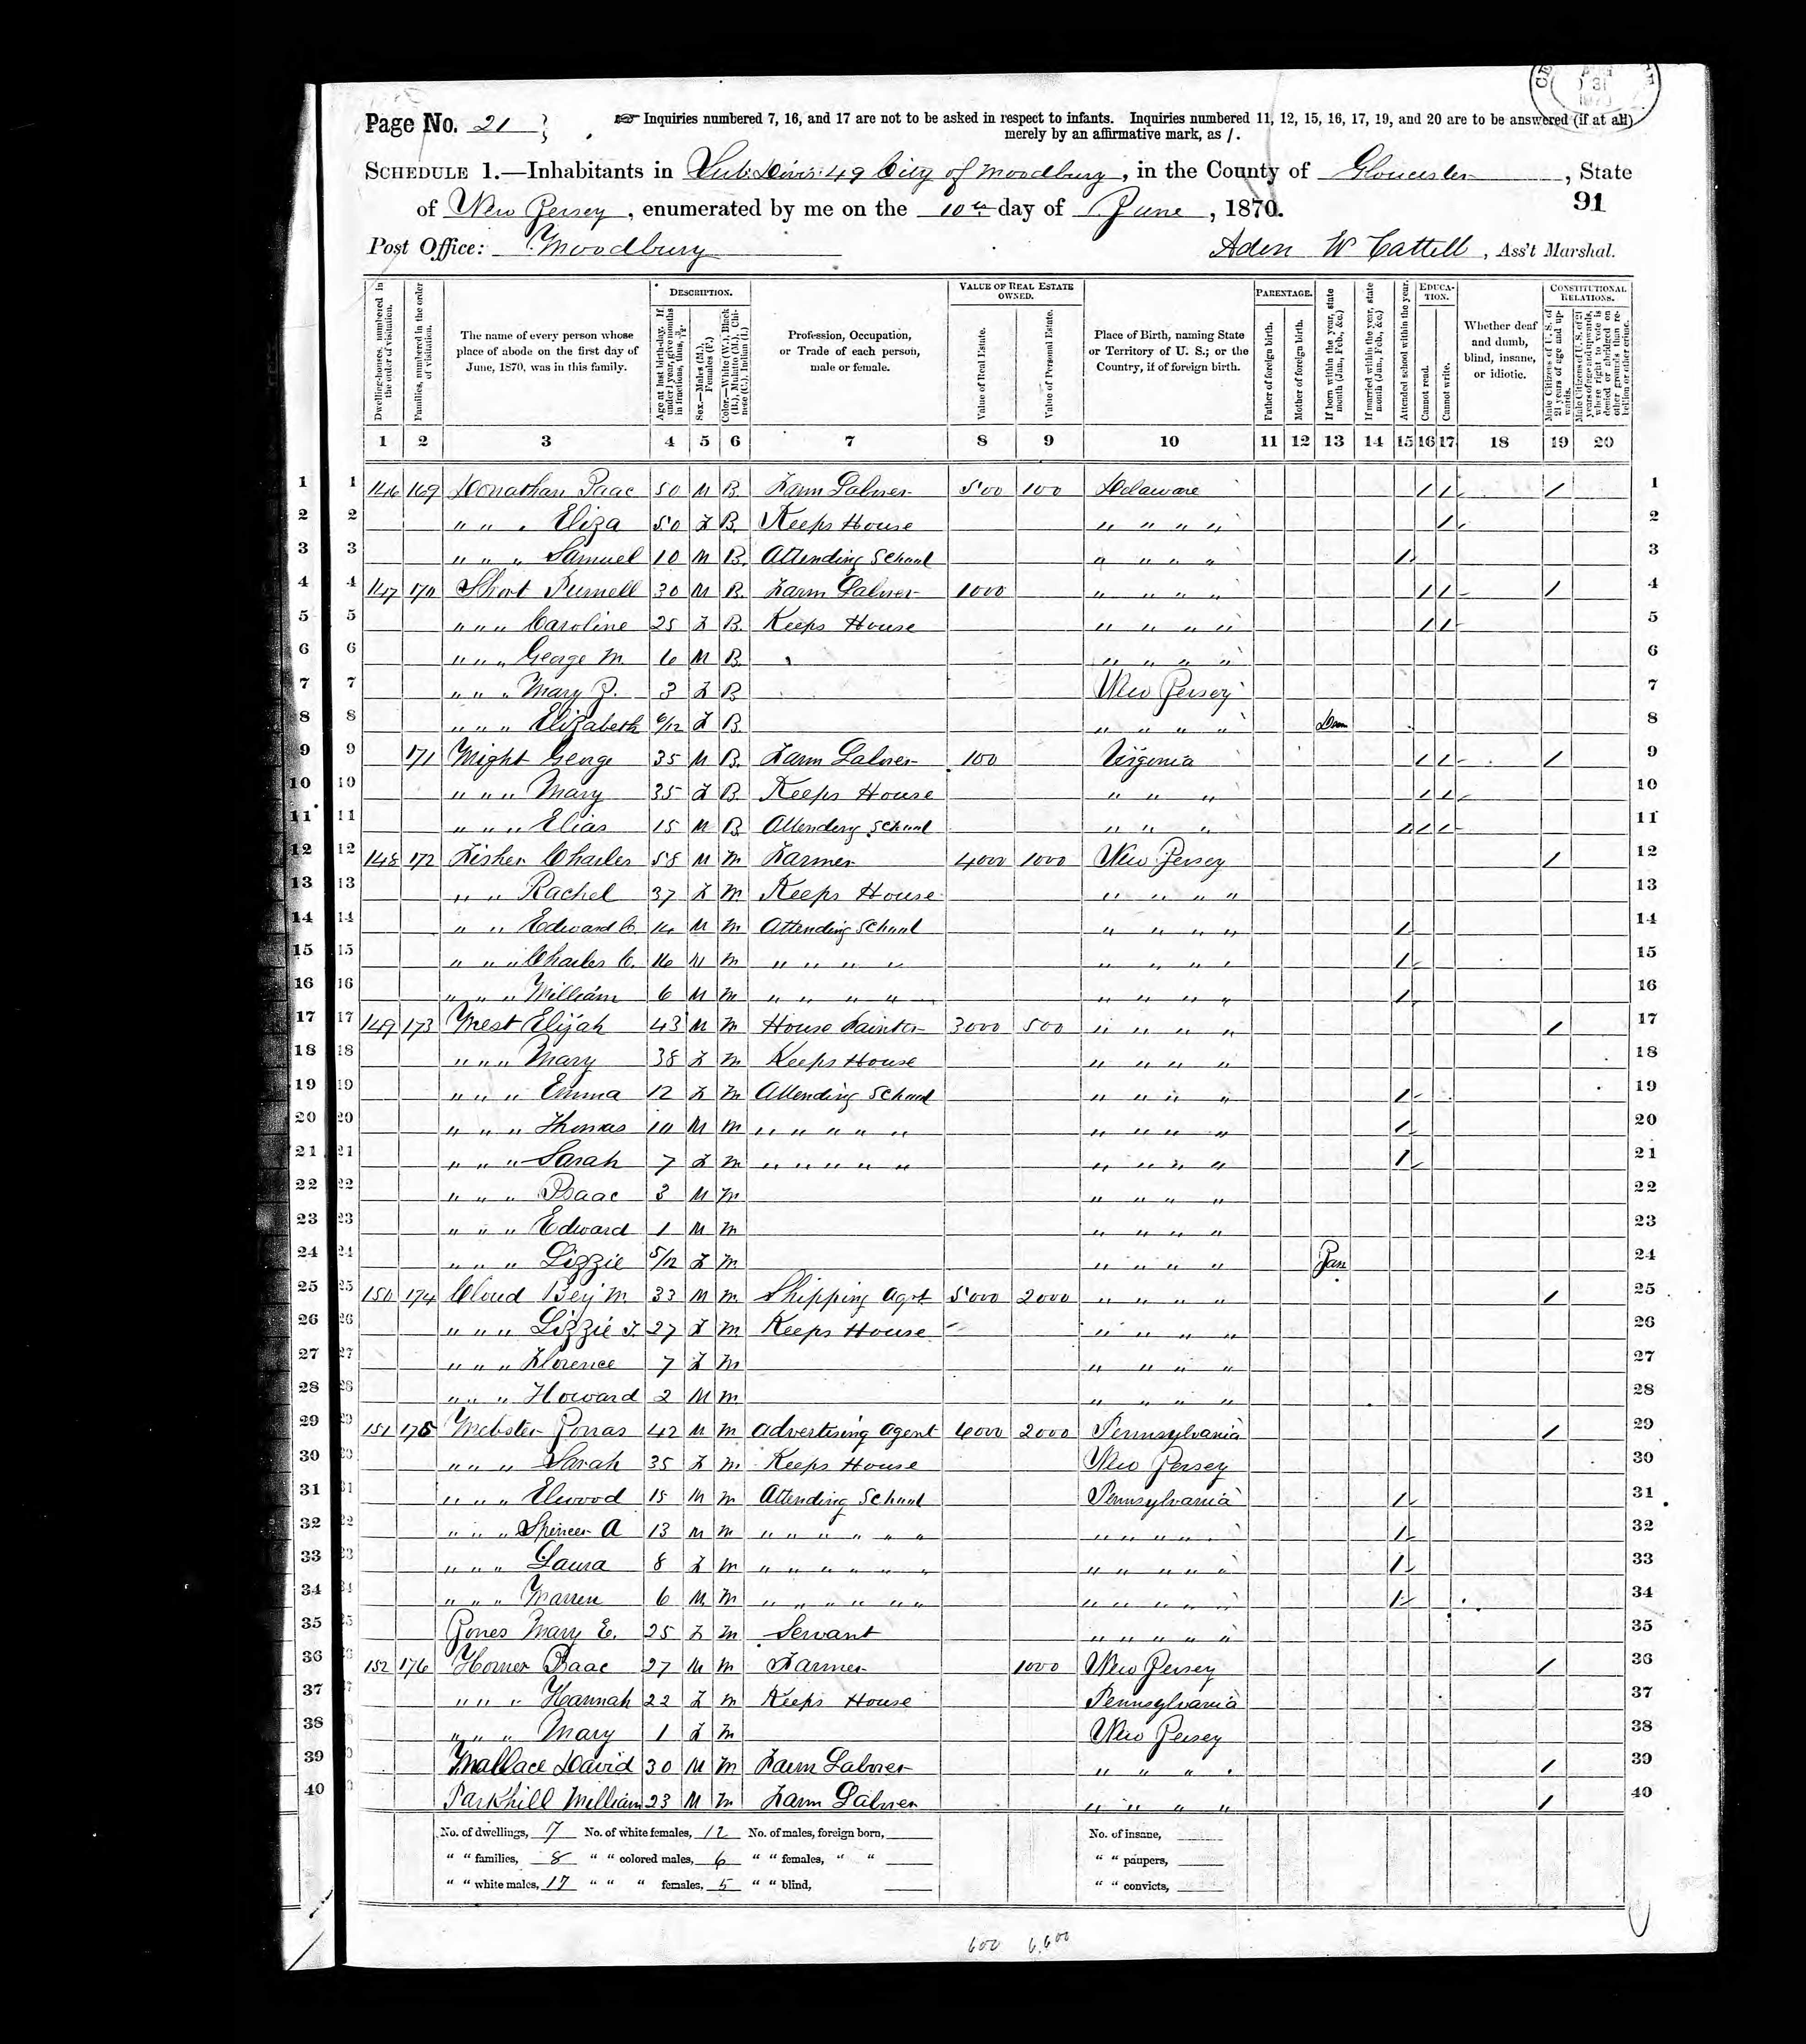 Page No. 21
☞ Inquiries numbered 7, 16, and 17 are not to be asked in respect to infants. Inquiries numbered 11, 12, 15, 16, 17, 19, and 20 are to be answered (if at all)
merely by an affirmative mark, as /.
SCHEDULE 1.—Inhabitants in Sub. Divis: 49 City of Woodbury, in the County of Gloucester, State
of New Jersey, enumerated by me on the 10th day of June, 1870.
91
Post Office: Woodbury
Aden W Cattell, Ass't Marshal.
Dwelling-houses, numbered in the order of visitation.
Families, numbered in the order of visitation.
The name of every person whose place of abode on the first day of June, 1870, was in this family.
DESCRIPTION.
Age at last birth-day. If under 1 year, give months in fractions, thus, 3/12
Sex.—Males (M.), Females (F.)
Color.—White (W.), Black (B.), Mulatto (M.), Chinese (C.), Indian (I.)
Profession, Occupation, or Trade of each person, male or female.
VALUE OF REAL ESTATE OWNED.
Value of Real Estate.
Value of Personal Estate.
Place of Birth, naming State or Territory of U. S.; or the Country, if of foreign birth.
PARENTAGE.
Father of foreign birth.
Mother of foreign birth.
If born within the year, state month (Jan., Feb., &c.)
If married within the year, state month (Jan., Feb., &c.)
Attended school within the year.
EDUCATION.
Cannot read.
Cannot write.
Whether deaf and dumb, blind, insane, or idiotic.
CONSTITUTIONAL RELATIONS.
Male Citizens of U. S. of 21 years of age and upwards.
Male Citizens of U. S. of 21 years of age and upwards, whose right to vote is denied or abridged on other grounds than rebellion or other crime.
1 2 3 4 5 6 7 8 9 10 11 12 13 14 15 16 17 18 19 20
1 1 146 169 Donathan Isaac 50 M B. Farm Laborer 500 100 Delaware / / / 1
2 2 " " " Eliza 50 F B. Keeps House " " " " / 2
3 3 " " " Samuel 10 M B. Attending School " " " " / 3
4 4 147 170 Short Purnell 30 M B. Farm Laborer 1000 " " " " / / / 4
5 5 " " " Caroline 25 F B. Keeps House " " " " / / 5
6 6 " " " George M. 6 M B. " " " " 6
7 7 " " " Mary J. 3 F B New Jersey 7
8 8 " " " Elizabeth 6/12 F B. " " " " 8
9 9 171 Wright George 35 M B. Farm Laborer 100 Virginia / / / 9
10 10 " " " Mary 35 F B. Keeps House " " " / / 10
11 11 " " " Elias 15 M B Attending School " " " / / / 11
12 12 148 172 Fisher Charles 58 M M Farmer 4000 1000 New Jersey / 12
13 13 " " Rachel 37 F M. Keeps House " " " " 13
14 14 " " Edward C. 14 M M Attending School " " " " / 14
15 15 " " " Charles C. 16 M M " " " " " " " " / 15
16 16 " " " William 6 M M " " " " " " " " / 16
17 17 149 173 West Elijah 43 M M House Painter 3000 500 " " " " / 17
18 18 " " " Mary 38 F M Keeps House " " " " 18
19 19 " " " Emma 12 F M Attending School " " " " / 19
20 20 " " " Thomas 10 M M " " " " " " " " " / 20
21 21 " " " Sarah 7 F M " " " " " " " " " / 21
22 22 " " " Isaac 3 M M " " " " 22
23 23 " " " Edward 1 M M " " " " 23
24 24 " " " Lizzie 5/12 F M " " " " Jan 24
25 25 150 174 Cloud Benj M. 33 M M. Shipping Agt 5000 2000 " " " " / 25
26 26 " " " Lizzie T. 27 F M Keeps House " " " " 26
27 27 " " " Florence 7 F M " " " " 27
28 28 " " " Howard 2 M M. " " " " 28
29 29 151 175 Webster Jonas 42 M M Advertising Agent 4000 2000 Pennsylvania / 29
30 30 " " " Sarah 35 F M. Keeps House New Jersey 30
31 31 " " " Elwood 15 M M Attending School Pennsylvania / 31
32 32 " " " Spencer A 13 M M " " " " " " " " " " / 32
33 33 " " " Laura 8 F M " " " " " " " " " " " / 33
34 34 " " " Warren 6 M M " " " " " " " " " " " / 34
35 35 Jones Mary E. 25 F M Servant " " " " " 35
36 36 152 176 Horner Isaac 27 M M Farmer 1000 New Jersey / 36
37 37 " " " Hannah 22 F M Keeps House Pennsylvania 37
38 38 " " " Mary 1 F M New Jersey 38
39 39 Wallace David 30 M M Farm Laborer " " " " / 39
40 40 Parkhill William 23 M M Farm Laborer " " " " / 40
No. of dwellings, 7 No. of white females, 12 No. of males, foreign born, No. of insane,
" " families, 8 " " colored males, 6 " " females, " " " " paupers,
" " white males, 17 " " " females, 5 " " blind, " " convicts,
600 6,600